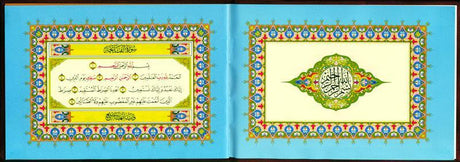 بسم الله الرحمن الرحيم
سورة الفاتحة
بسم الله الرحمن الرحيم
الحمد لله رب العالمين الرحمن الرحيم ملك يوم الدين
إياك نعبد وإياك نستعين اهدنا الصراط المستقيم صراط
الذين أنعمت عليهم غير المغضوب عليهم ولا الضالين